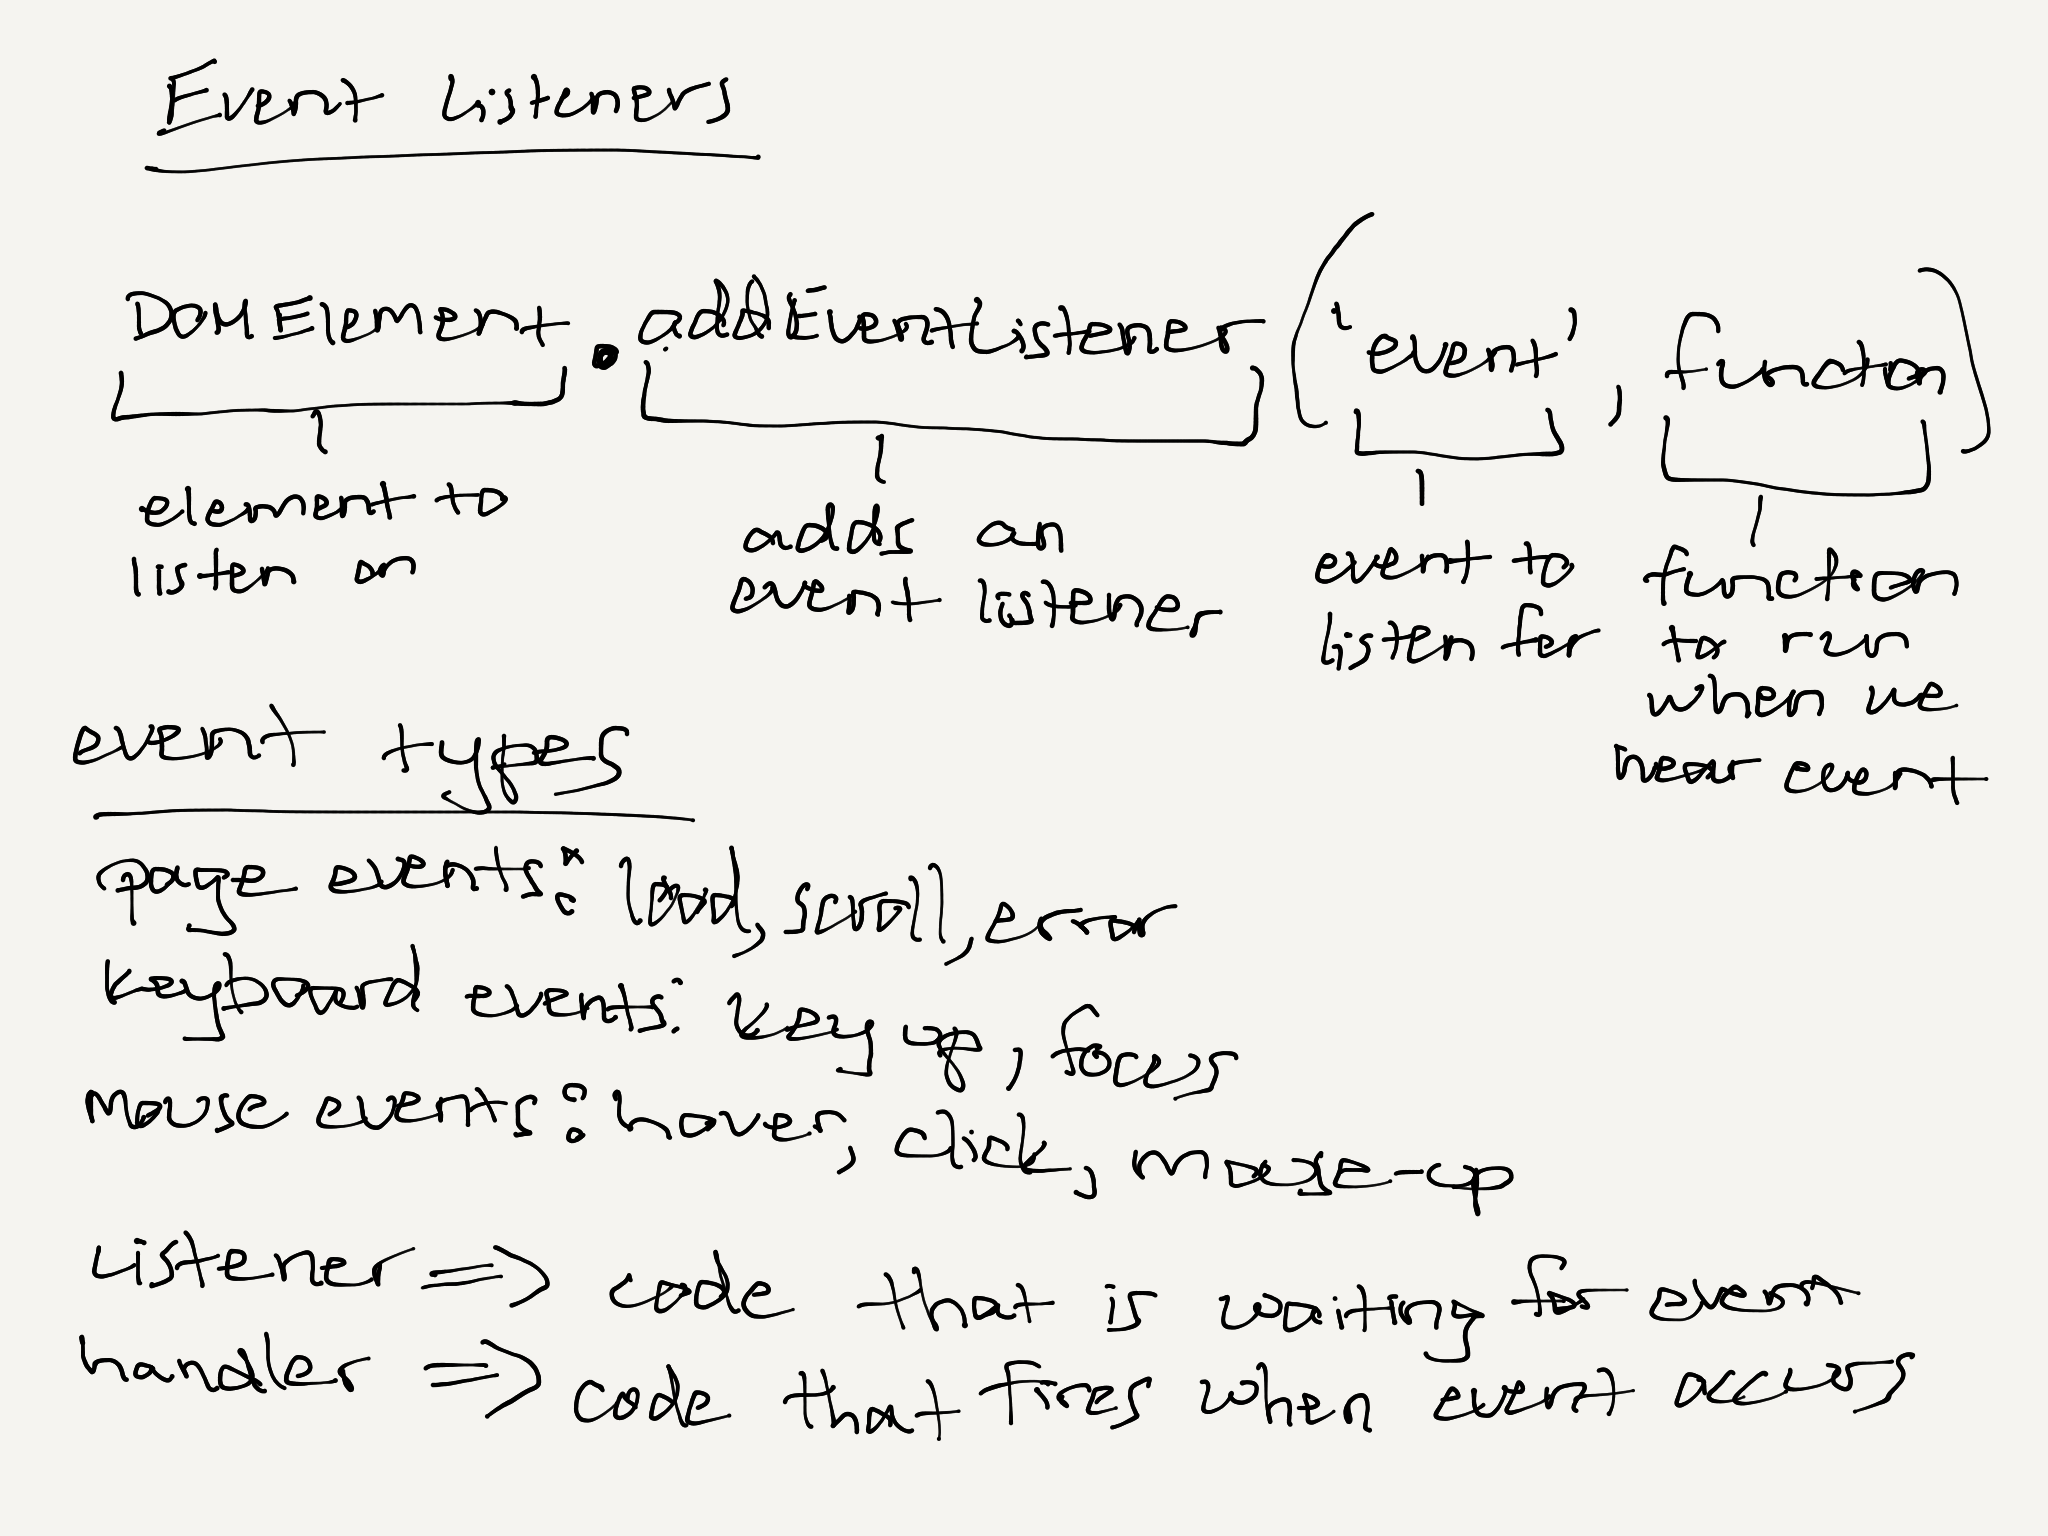 Event Listeners
DOMElement.addEventListener('event', function)
element to
listen on
adds an
event listener
event to
listen for
function
to run
when we
hear event
event types
page events: load, scroll, error
keyboard events: key up, focus
mouse events: hover, click, mouse-up
Listener => code that is waiting for event
handler => code that fires when event occurs